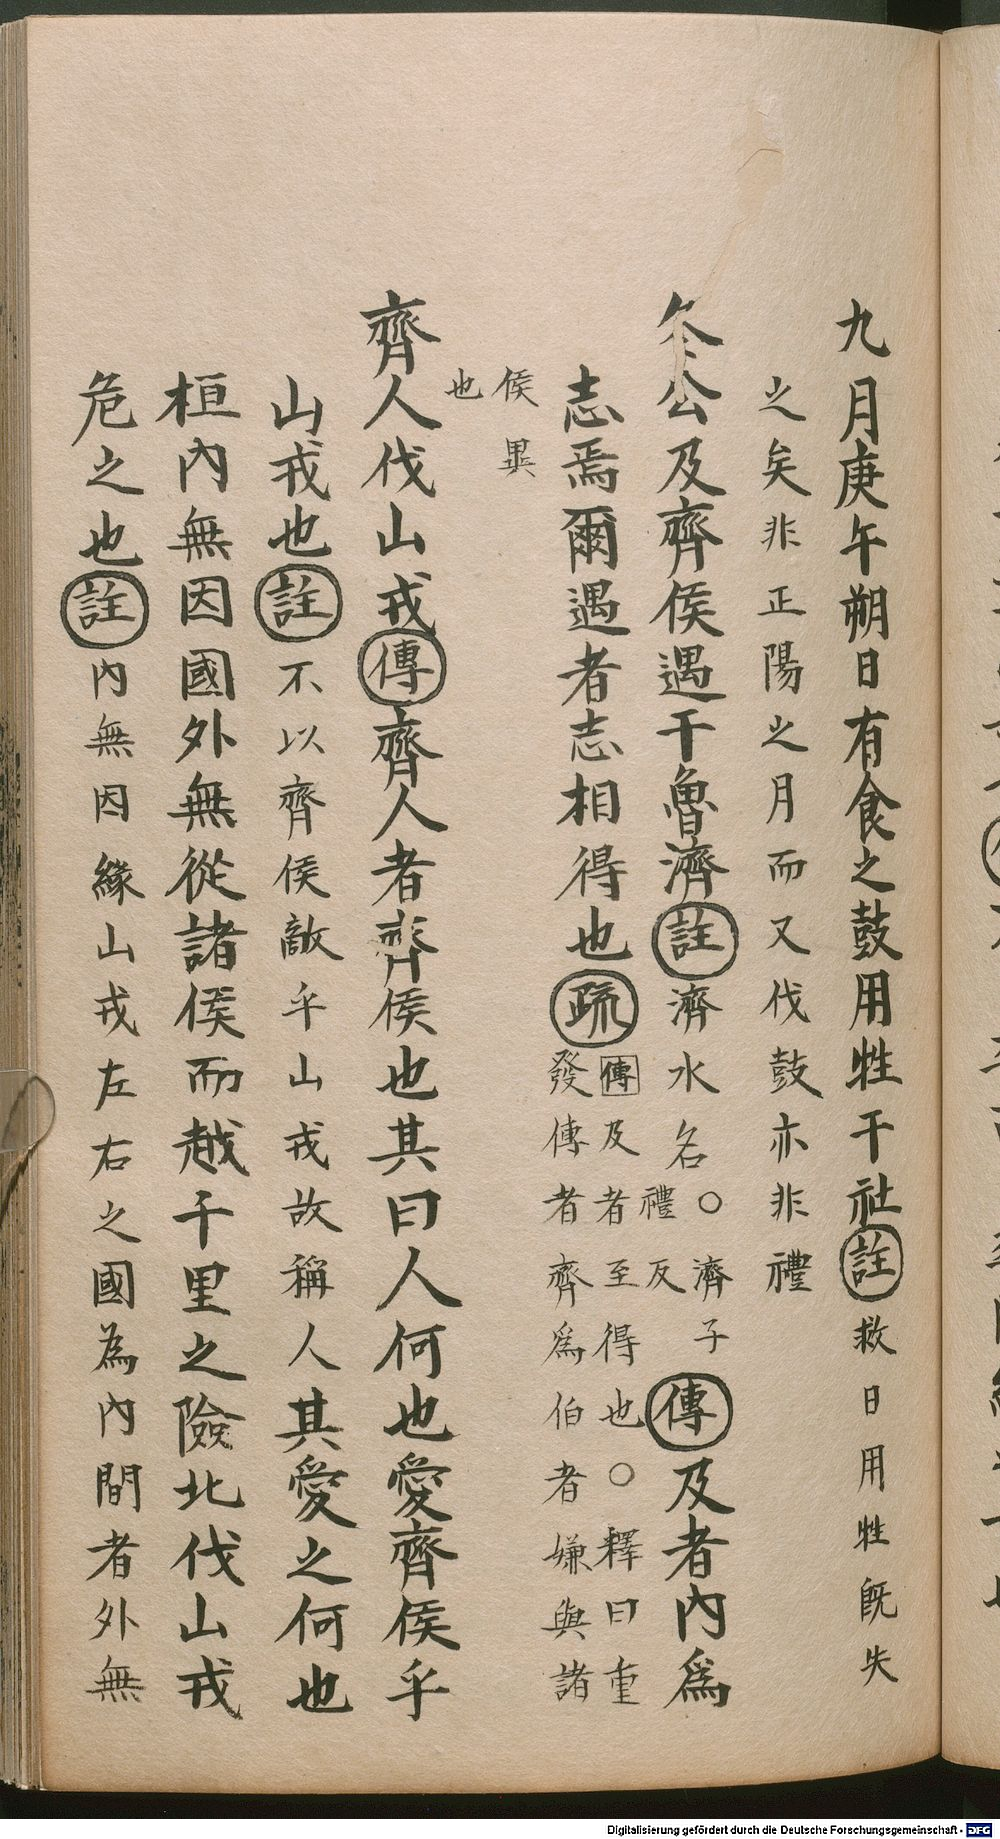 九月庚午朔日有食之鼓用牲于社註救日用牲旣失
之矣非正陽之月而又伐鼓亦非禮
冬公及齊侯遇于魯濟註濟水名○濟子禮反傳及者內爲
志焉爾遇者志相得也疏傳及者至得也○釋曰重發傳者齊爲伯者嫌與諸
侯異也
齊人伐山戎傳齊人者齊侯也其曰人何也愛齊侯乎
山戎也註不以齊侯敵乎山戎故稱人其愛之何也
桓內無因國外無從諸侯而越千里之險北伐山戎
危之也註內無因緣山戎左右之國為內間者外無
Digitalisierung gefördert durch die Deutsche Forschungsgemeinschaft - DFG